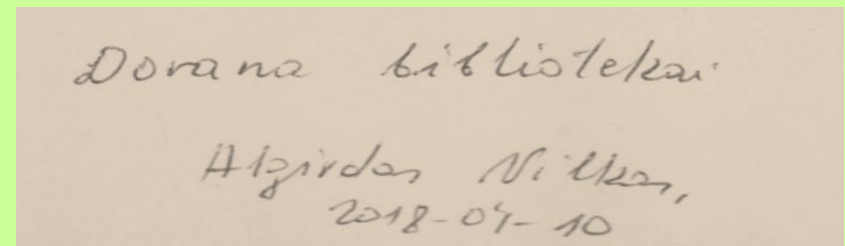 Dovana bibliotekai
Algirdas Vilkas,
2018-04-10